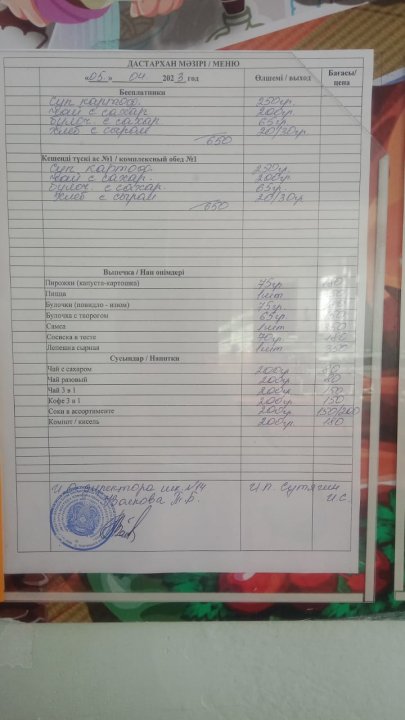 ДАСТАРХАН МӘЗІРІ / МЕНЮ
«05» 04 2023 год Өлшемі / выход Бағасы/ цена
Бесплатники
Суп картоф. 250гр.
Чай с сахар. 200гр.
Булоч. с сахар 65гр.
Хлеб с сыром 20/30гр.
650
Кешенді түскі ас №1 / комплексный обед №1
Суп картоф. 250гр.
Чай с сахар. 200гр.
Булоч. с сахар. 65гр.
Хлеб с сыром 20/30гр
650
Выпечка / Нан өнімдері
Пирожки (капуста-картошка) 75гр.
Пицца 1шт
Булочки (повидло - изюм) 75гр.
Булочка с творогом 65гр.
Самса 1шт
Сосиска в тесте 70гр.
Лепешка сырная 1шт
Сусындар / Напитки
Чай с сахаром 200гр.
Чай разовый 200гр.
Чай 3 в 1 200гр. 150
Кофе 3 в 1 200гр. 150
Соки в ассортименте 200гр. 150/200
Компот / кисель 200гр. 180
И.О. директора шк. №14 И.П. Сутягин
Волкова Т.Б. И.С.